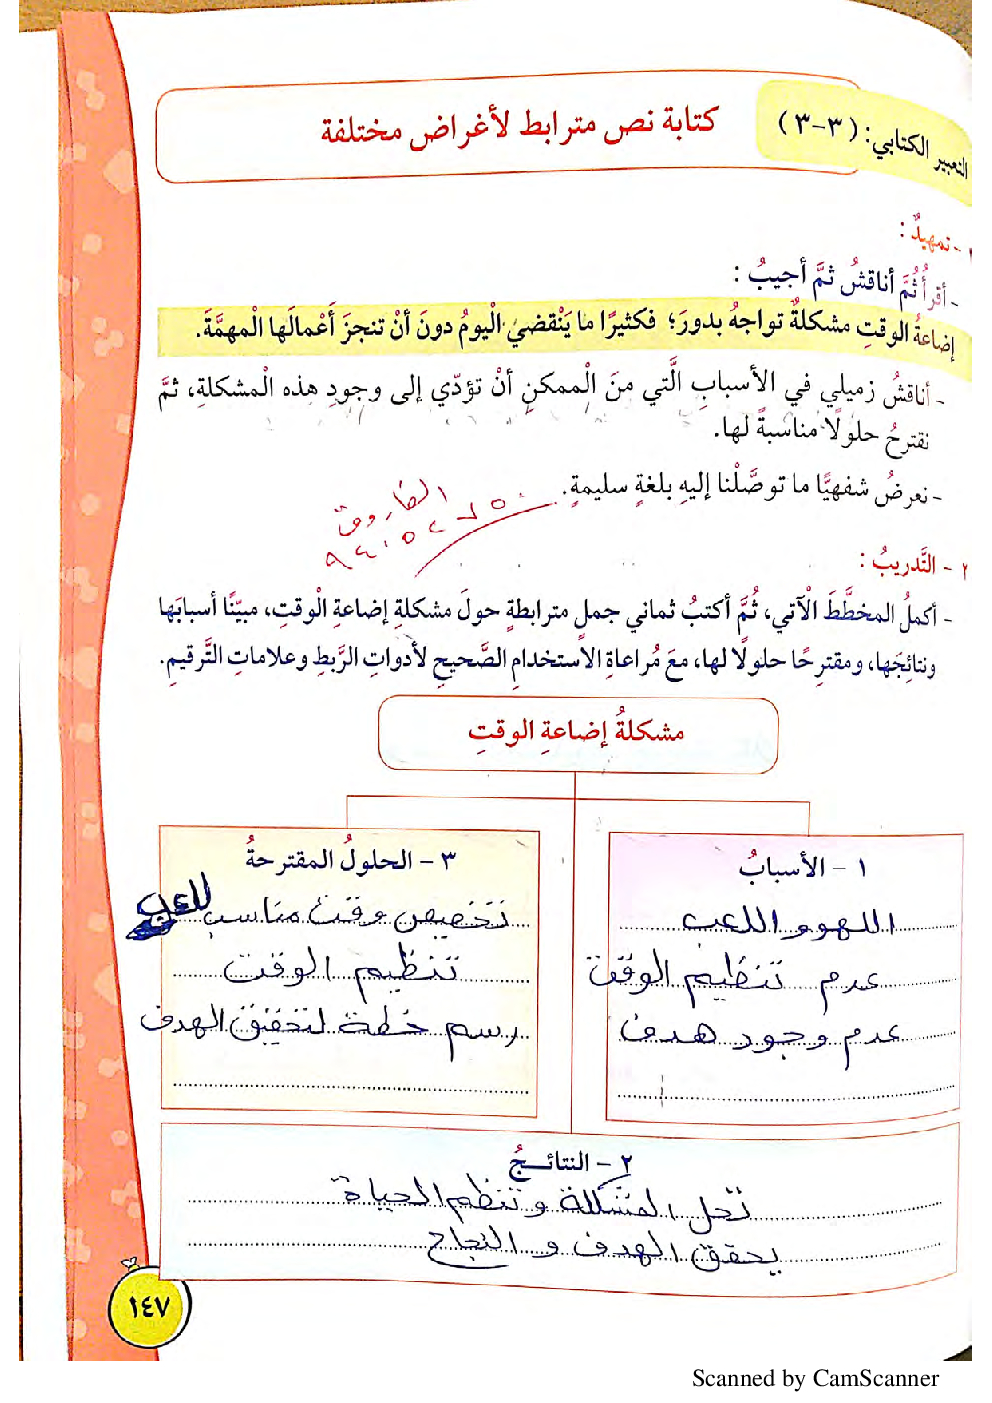 التعبير الكتابي: (٣-٣)
كتابة نص مترابط لأغراض مختلفة
١ - تمهيدٌ:
- أقرأُ ثُمَّ أناقشُ ثمَّ أجيبُ:
إضاعةُ الوقتِ مشكلةٌ تواجهُ بدورَ؛ فكثيرًا ما يَنْقضي الْيومُ دونَ أنْ تنجزَ أَعْمالَها الْمهمَّةَ.
- أناقشُ زميلي في الأسبابِ الَّتي منَ الْممكنِ أنْ تؤدّي إلى وجودِ هذه الْمشكلةِ، ثمَّ
نقترحُ حلولًا مناسبةً لها.
- نعرضُ شفهيًّا ما توصَّلْنا إليهِ بلغةٍ سليمةٍ.
الفاروق
٩٤٠٥٤٧٥٠
٢ - التَّدريبُ:
- أكملُ المخطَّطَ الْآتي، ثُمَّ أكتبُ ثماني جملٍ مترابطةٍ حولَ مشكلةِ إضاعةِ الْوقتِ، مبيّنًا أسبابَها
ونتائجَها، ومقترِحًا حلولًا لها، معَ مُراعاةِ الاستخدامِ الصَّحيحِ لأدواتِ الرَّبطِ وعلاماتِ التَّرقيمِ.
مشكلةُ إضاعةِ الوقتِ
١ - الأسبابُ
اللهو و اللعب
عدم تنظيم الوقت
عدم وجود هدف
٣ - الحلولُ المقترحةُ
تخصيص وقت مناسب للعب
تنظيم الوقت
رسم خطة لتحقيق الهدف
٢ - النتائــجُ
تحل المشكلة و تنظم الحياة
يحقق الهدف و النجاح
١٤٧
Scanned by CamScanner